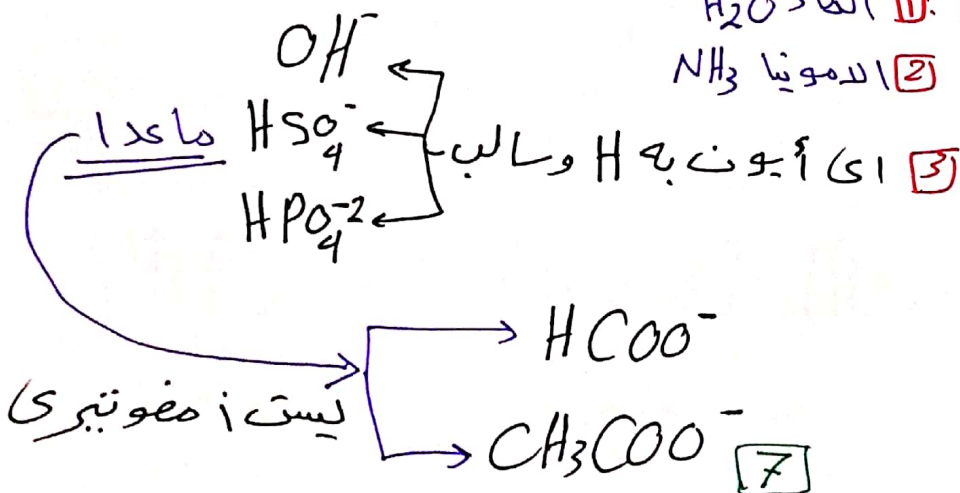 1 الماء H₂O
2 الامونيا NH₃
3 اى أيون به H وسالب
OH⁻
HSO₄⁻
HPO₄⁻²
ماعدا
HCOO⁻
CH₃COO⁻
ليست امفوتيرى
7